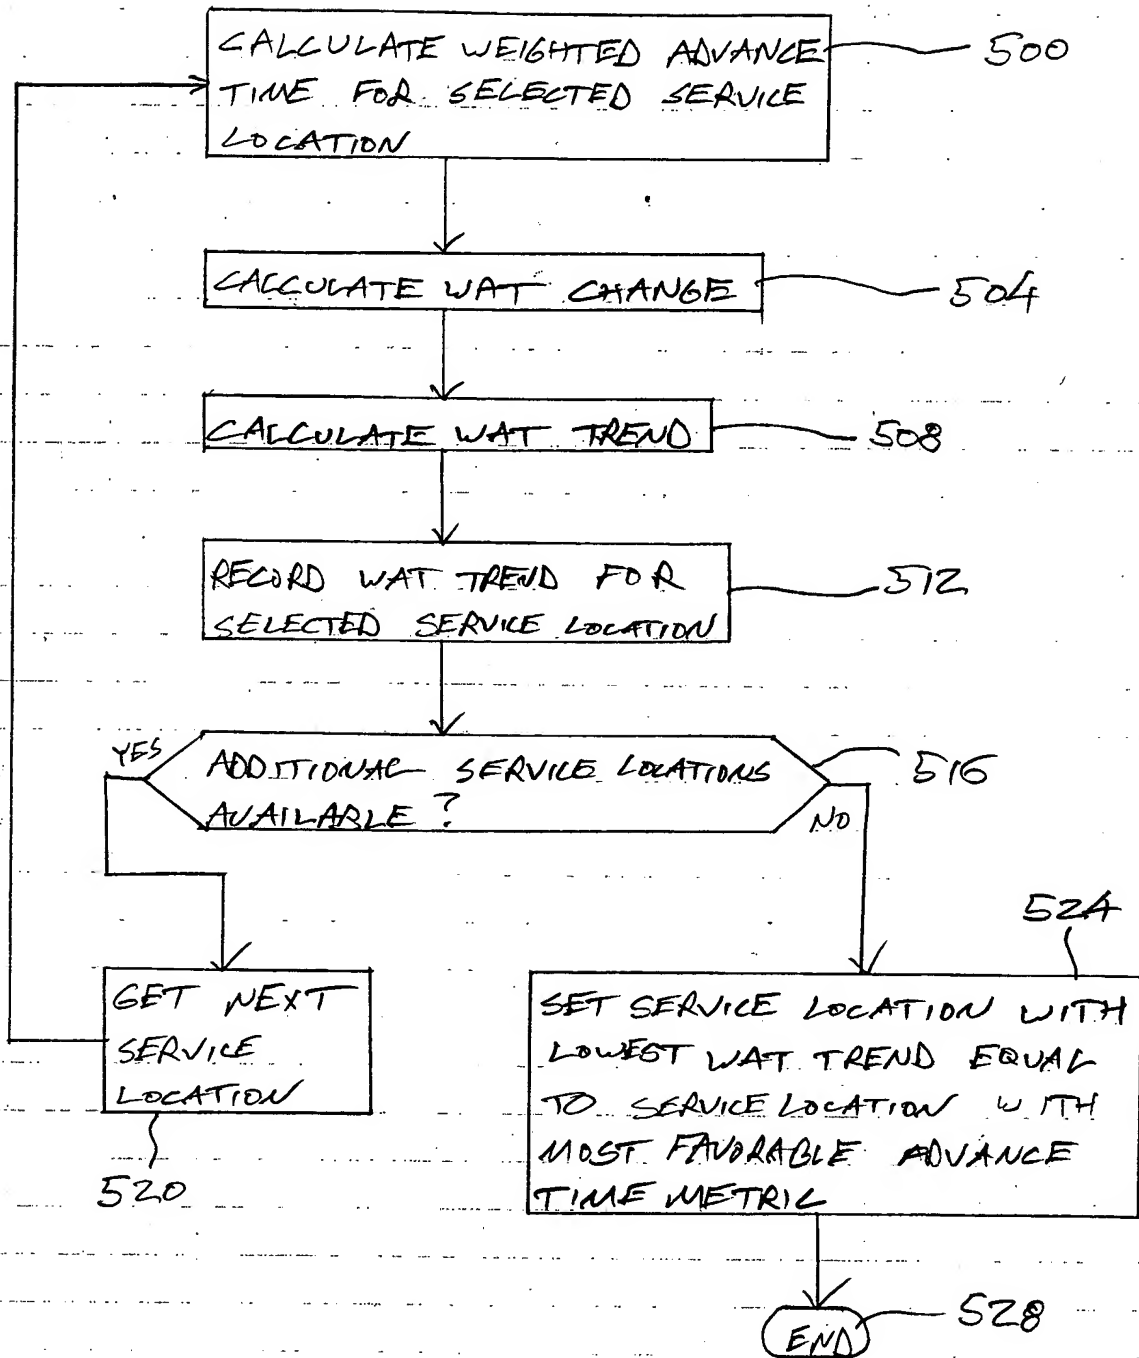 CALCULATE WEIGHTED ADVANCE
TIME FOR SELECTED SERVICE
LOCATION
500
CALCULATE WAT CHANGE
504
CALCULATE WAT TREND
508
RECORD WAT TREND FOR
SELECTED SERVICE LOCATION
512
YES
ADDITIONAL SERVICE LOCATIONS
AVAILABLE?
516
NO
524
GET NEXT
SERVICE
LOCATION
520
SET SERVICE LOCATION WITH
LOWEST WAT TREND EQUAL
TO SERVICE LOCATION WITH
MOST FAVORABLE ADVANCE
TIME METRIC
528
END